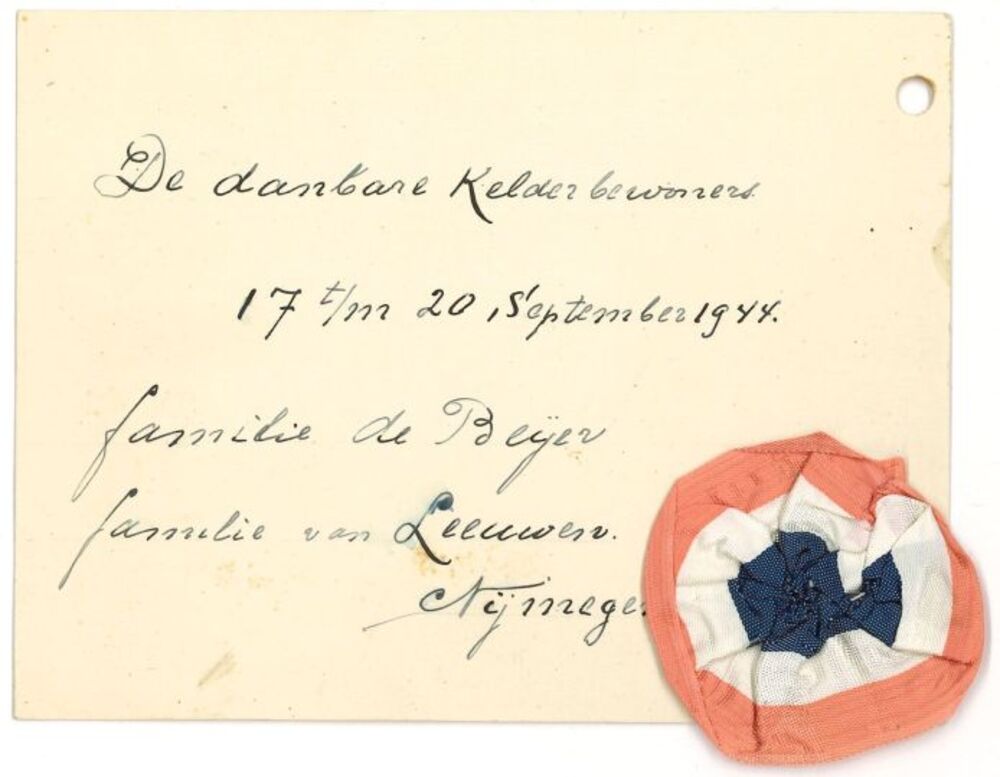 De dankbare Kelderbewoners.
17 t/m 20 September 1944.
familie de Beijer
familie van Leeuwen.
Nijmegen